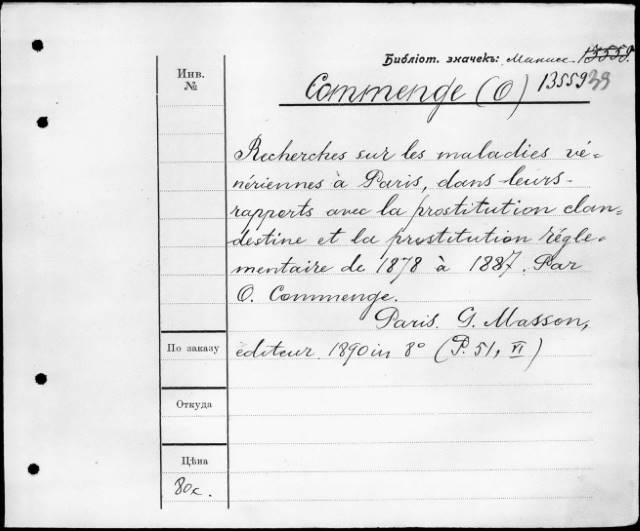 Библіот. значекъ: 13559.
Инв.
№
Commenge (O) 13559
Recherches sur les maladies vé-
nériennes à Paris, dans leurs-
rapports avec la prostitution clan-
destine et la prostitution régle-
mentaire de 1878 à 1887. Par
O. Commenge.
Paris. G. Masson,
По заказу
éditeur. 1890 in 8° (P. 51, VI)
Откуда
Цѣна
80к.